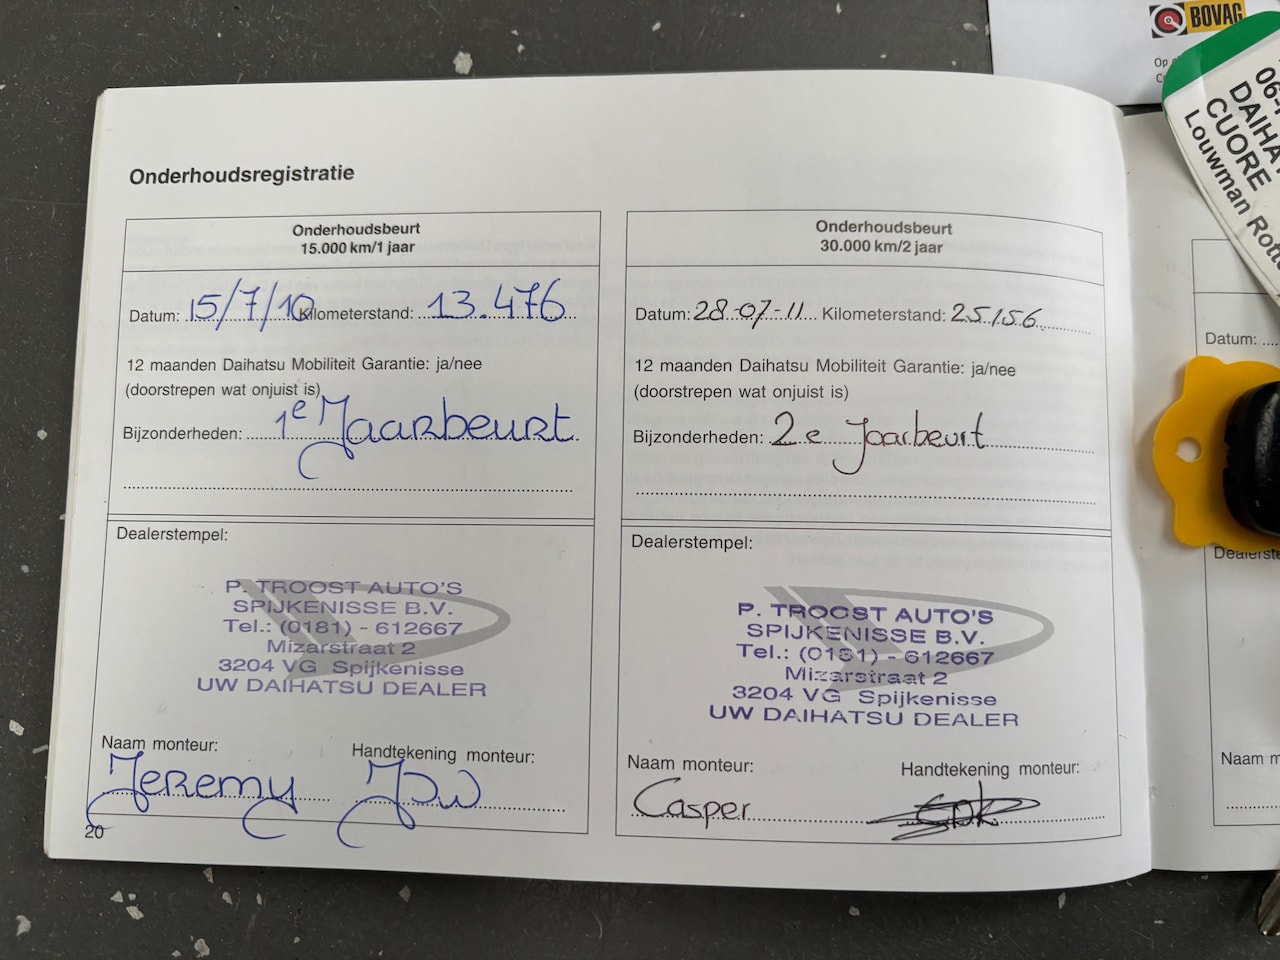 BOVAG
Op
06-
DAIHA
CUORE
Louwman Rotte
Onderhoudsregistratie
Onderhoudsbeurt
15.000 km/1 jaar
Datum: 15/7/10 Kilometerstand: 13.476
12 maanden Daihatsu Mobiliteit Garantie: ja/nee
(doorstrepen wat onjuist is)
Bijzonderheden: 1e Jaarbeurt
Dealerstempel:
P. TROOST AUTO'S
SPIJKENISSE B.V.
Tel.: (0181) - 612667
Mizarstraat 2
3204 VG Spijkenisse
UW DAIHATSU DEALER
Naam monteur: Handtekening monteur:
Jeremy JDW
20
Onderhoudsbeurt
30.000 km/2 jaar
Datum: 28-07-11 Kilometerstand: 25.156
12 maanden Daihatsu Mobiliteit Garantie: ja/nee
(doorstrepen wat onjuist is)
Bijzonderheden: 2e Jaarbeurt
Dealerstempel:
P. TROOST AUTO'S
SPIJKENISSE B.V.
Tel.: (0181) - 612667
Mizarstraat 2
3204 VG Spijkenisse
UW DAIHATSU DEALER
Naam monteur: Handtekening monteur:
Casper
Datum:
Dealerste
Naam m